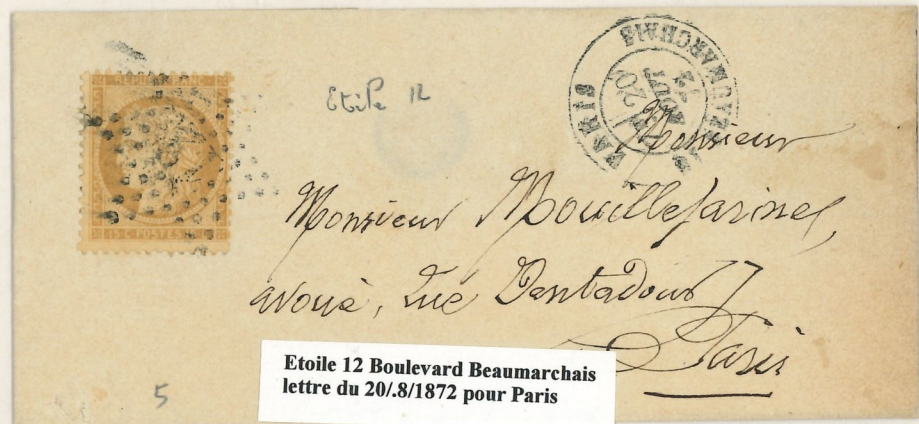 REPUB FRANC
15 C. POSTES 15 C.
Etoile 12
PARIS
BD BEAUMARCHAIS
20
AOUT
72
Monsieur
Monsieur Mouillefarine,
avoué, rue Ventadour 7
Paris
Etoile 12 Boulevard Beaumarchais
lettre du 20/.8/1872 pour Paris
5